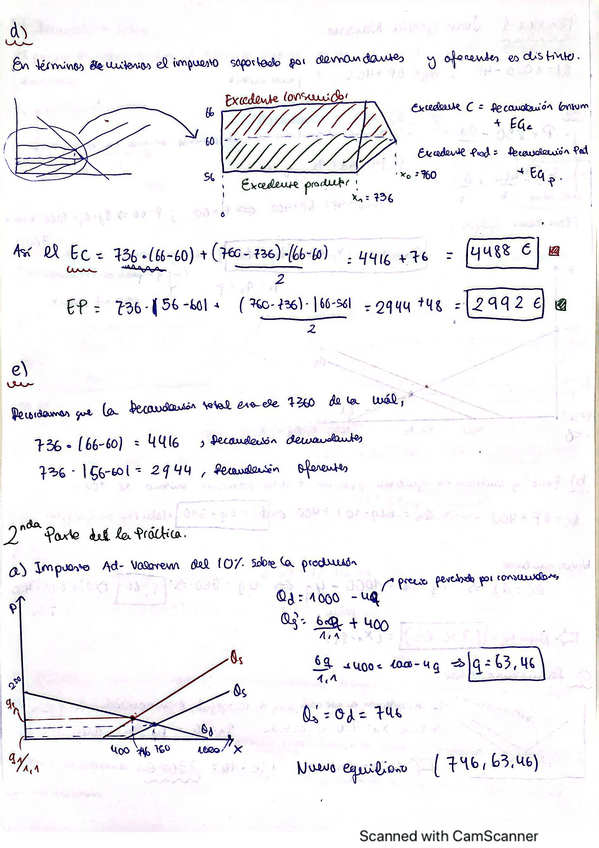 d)
En términos de unitarios el impuesto soportado por demandantes y oferentes es distinto.
Excedente Consumidor
66
60
56
Excedente productor
x₁ = 736
x₀ = 760
0
Excedente C = Recaudación Consum
+ EGc
Excedente Prod = Recaudación Prod
+ EGp.
Así el EC = 736·(66-60) + (760-736)·(66-60) / 2 = 4416 + 76 = 4488 €
EP = 736·|56-60| + (760-736)·|66-56| / 2 = 2944 + 48 = 2992 €
e)
Recordamos que la Recaudación total era de 7360 de la cuál,
736·(66-60) = 4416, Recaudación demandantes
736·|56-60| = 2944, Recaudación oferentes
2nda Parte de la Práctica.
a) Impuesto Ad-Valorem del 10% sobre la producción
precio percibido por consumidores
Qd = 1000 - 4q
Qs' = 6q/1,1 + 400
6q/1,1 + 400 = 1000 - 4q ⇒ q = 63,46
Qs' = Qd = 746
Nuevo equilibrio (746, 63,46)
P
250
q1
q1/1,1
Qs
Qs
Qd
400 746 760 1000 X
Scanned with CamScanner